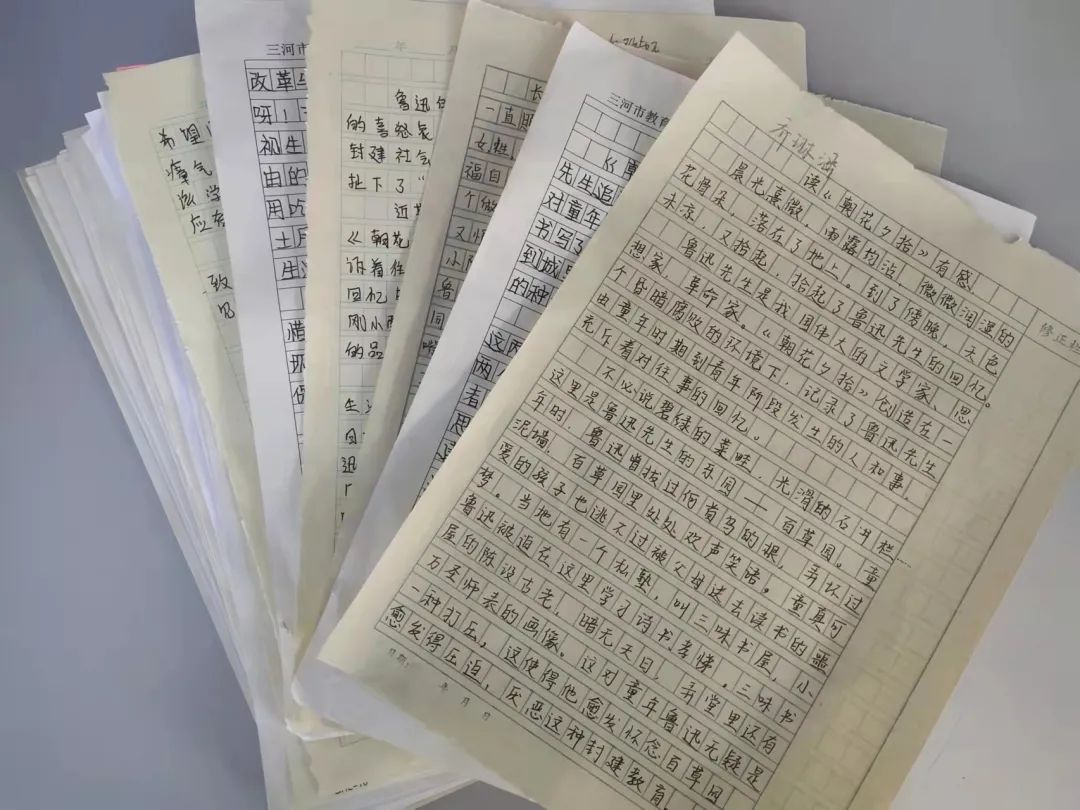 希望
瘴气
应
致
三河市
改革
呀！
初生
由的
用
土
生
惜
年
鲁迅
的喜怒哀
封建社会
扯下了“
近
《朝花
诉着
回忆
刚
的品
生
迅
长
一直
女
福自
个
又
鲁
三河市教育
《朝
先生追
对童年
书写了
到城
的种
这两
两
者
思
读《朝花夕拾》有感
晨光熹微，雨露均沾，微微润湿的
花骨朵，落在了地上。到了傍晚，天色
未凉，又拾起，拾起了鲁迅先生的回忆。
鲁迅先生是我国伟大的文学家、思
想家、革命家。《朝花夕拾》创造在一
个昏暗腐败的环境下，记录了鲁迅先生
由童年时期到青年阶段发生的人和事，
充斥着对往事的回忆。
不必说碧绿的菜畦，光滑的石井栏……
这里是鲁迅先生的乐园——百草园。童
年时，鲁迅曾拔过何首乌的根，弄坏过
泥墙，百草园里处处欢声笑语。童真可
爱的孩子也逃不过被父母送去读书的噩
梦。当地有一个私塾，叫三味书屋，小
鲁迅被迫在这里学习诗书孝悌。三味书
屋的陈设古老，暗无天日，弄堂里还有
万圣师表的画像。这对童年鲁迅无疑是
一种打压，这使得他愈发怀念百草园，
愈发得压迫，厌恶这种封建教育。
修正栏
日期： 年 月 日